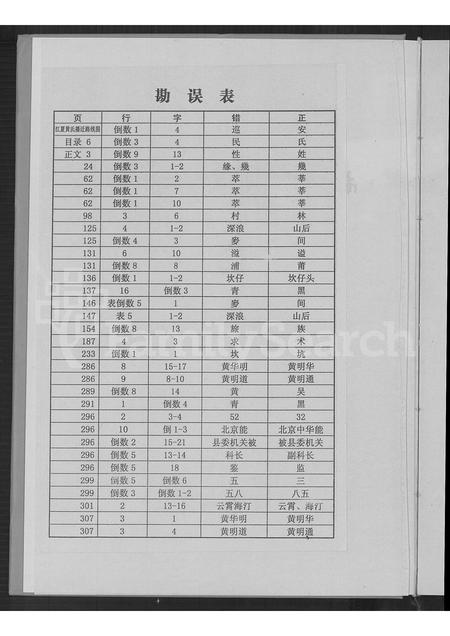 勘误表
页 行 字 错 正
江夏黄氏播迁路线图 倒数1 4 巡 安
目录 6 倒数3 4 民 氏
正文 3 倒数9 13 性 姓
24 倒数3 1-2 缘、幾 幾
62 倒数1 2 萃 莘
62 倒数1 7 萃 莘
62 倒数1 10 萃 莘
98 3 6 村 林
125 4 1-2 深浪 山后
125 倒数4 3 麥 间
131 6 10 溢 谥
131 倒数8 8 浦 莆
136 倒数1 1-2 坎仔 坎仔头
137 16 倒数3 青 黑
146 表倒数5 1 麥 间
147 表5 1-2 深浪 山后
154 倒数8 13 旅 族
187 4 3 求 术
233 倒数1 1 坎 坑
286 8 15-17 黄华明 黄明华
286 9 8-10 黄明道 黄明通
289 倒数8 14 黄 吴
291 1 倒数4 青 黑
296 2 3-4 52 32
296 10 倒1-3 北京能 北京中华能
296 倒数2 15-21 县委机关被 被县委机关
296 倒数5 13-14 科长 副科长
296 倒数5 18 鉴 监
299 倒数5 倒数6 五 三
299 倒数3 倒数1-2 五八 八五
301 2 13-16 云霄海汀 云霄、海汀
307 3 1 黄华明 黄明华
307 3 4 黄明道 黄明通
FamilySearch